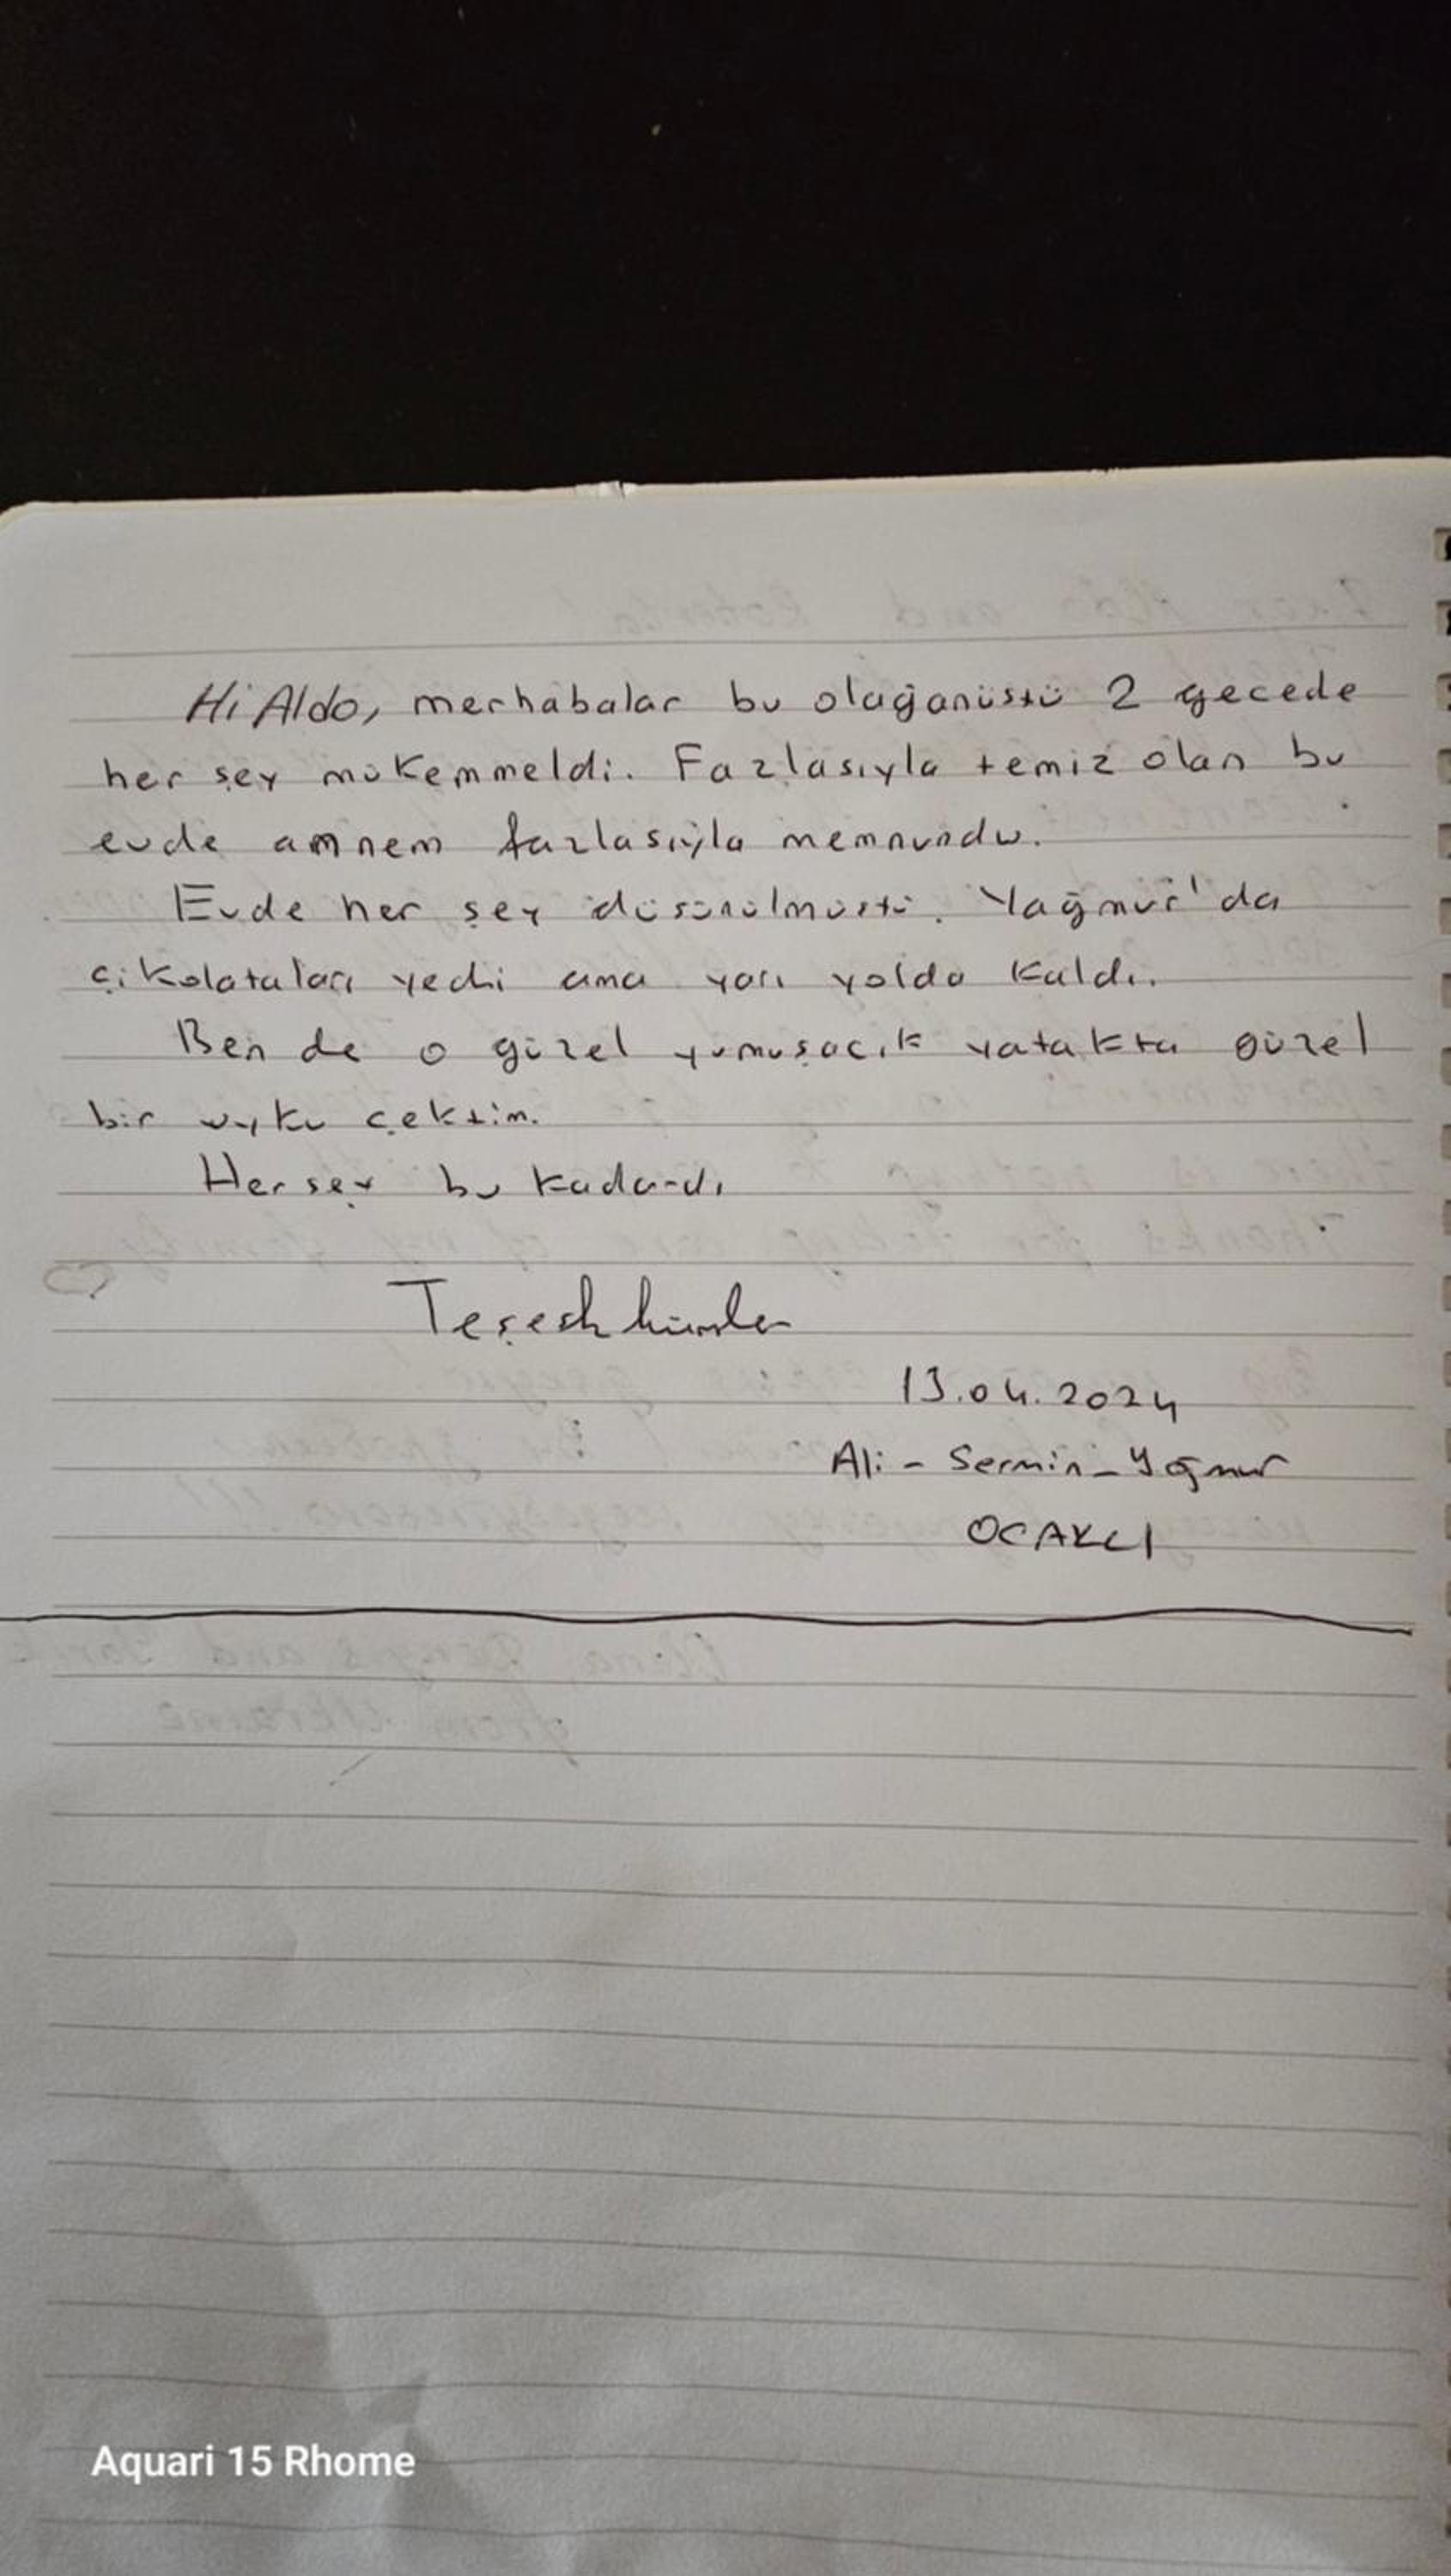 Hi Aldo, merhabalar bu olağanüstü 2 gecede
her şey mükemmeldi. Fazlasıyla temiz olan bu
evde annem fazlasıyla memnundu.
Evde her şey düşünülmüştü. Yağmur'da
çikolataları yedi ama yarı yolda kaldı.
Ben de o güzel yumuşacık yatakta güzel
bir uyku çektim.
Her şey bu kadardı
Teşekkürler
13.04.2024
Ali - Sermin - Yağmur
OCAKLI
Aquari 15 Rhome